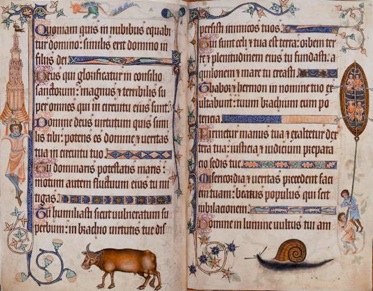 Quoniam quis in nubibus equabi
tur domino: similis erit domino in
filiis dei.
Deus qui glorificatur in consilio
sanctorum: magnus & terribilis su
per omnes qui in circuitu eius sunt.
Domine deus virtutum quis simi
lis tibi: potens es domine & veritas
tua in circuitu tuo.
Tu dominaris potestatis maris:
motum autem fluctuum eius tu
mitigas.
Tu humiliasti sicut vulneratum su
perbum: in brachio virtutis tue dis
persisti inimicos tuos.
Tui sunt celi & tua est terra: orbem ter
re & plenitudinem eius tu fundasti: a
quilonem & mare tu creasti.
Thabor & hermon in nomine tuo ex
ultabunt: tuum brachium cum po
tentia.
Firmetur manus tua & exaltetur dex
tera tua: iusticia & iudicium prepara
cio sedis tue.
Misericordia & veritas precedent faci
em tuam: beatus populus qui scit
iubilacionem.
Domine in lumine vultus tui am